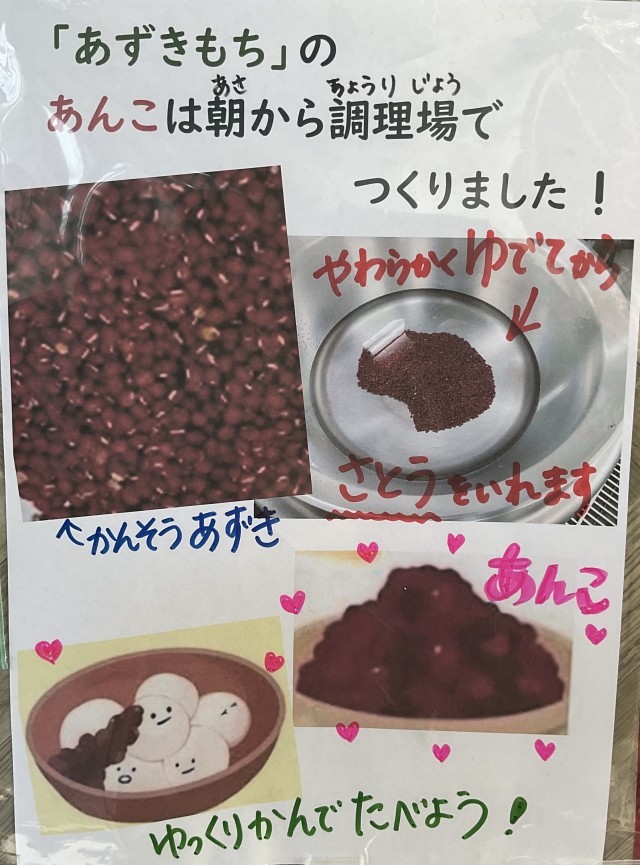 「あずきもち」の
あさ ちょうり じょう
あんこは朝から調理場で
つくりました！
やわらかくゆでてから
さとうをいれます
↑かんそうあずき
あんこ
ゆっくりかんでたべよう！